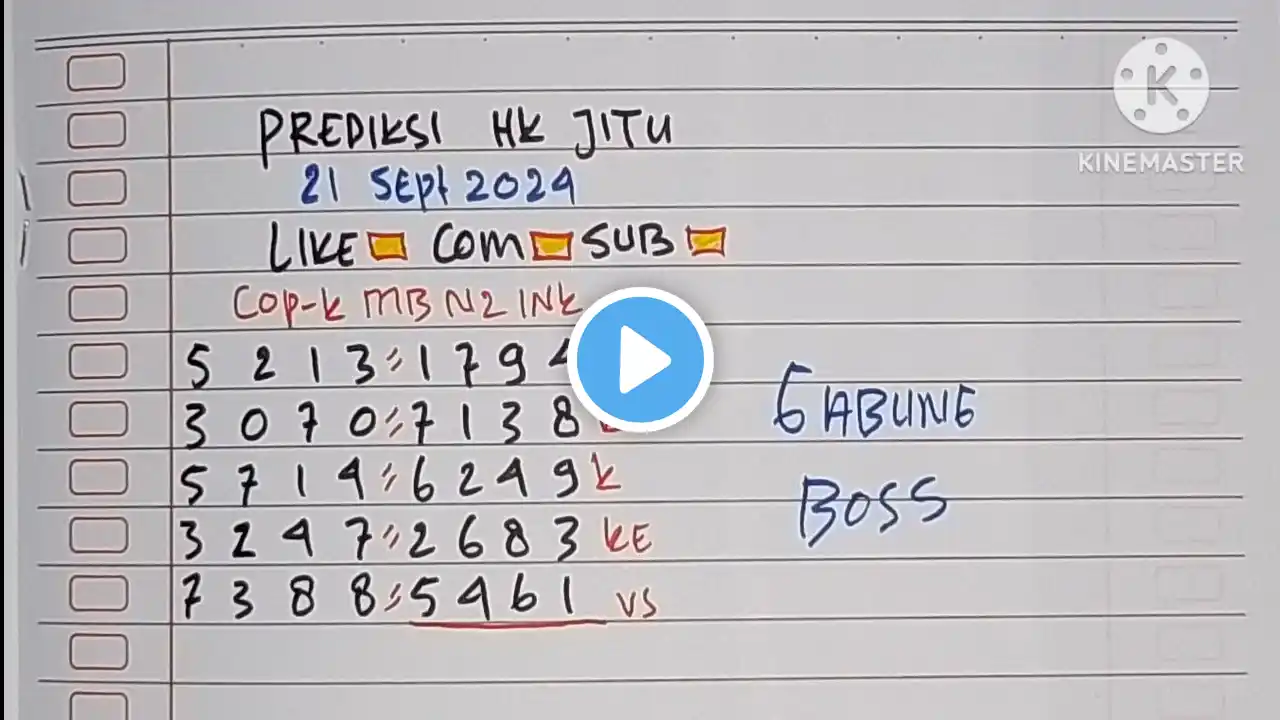 PREDIKSI HK JITU
21 SEPt 2024
LIKE COM SUB
COP-K MB N2 INK
5 2 1 3 // 1 7 9
3 0 7 0 // 7 1 3 8
5 7 1 4 // 6 2 4 9 K
3 2 4 7 // 2 6 8 3 KE
7 3 8 8 // 5 4 6 1 VS
GABUNG
BOSS
K
KINEMASTER